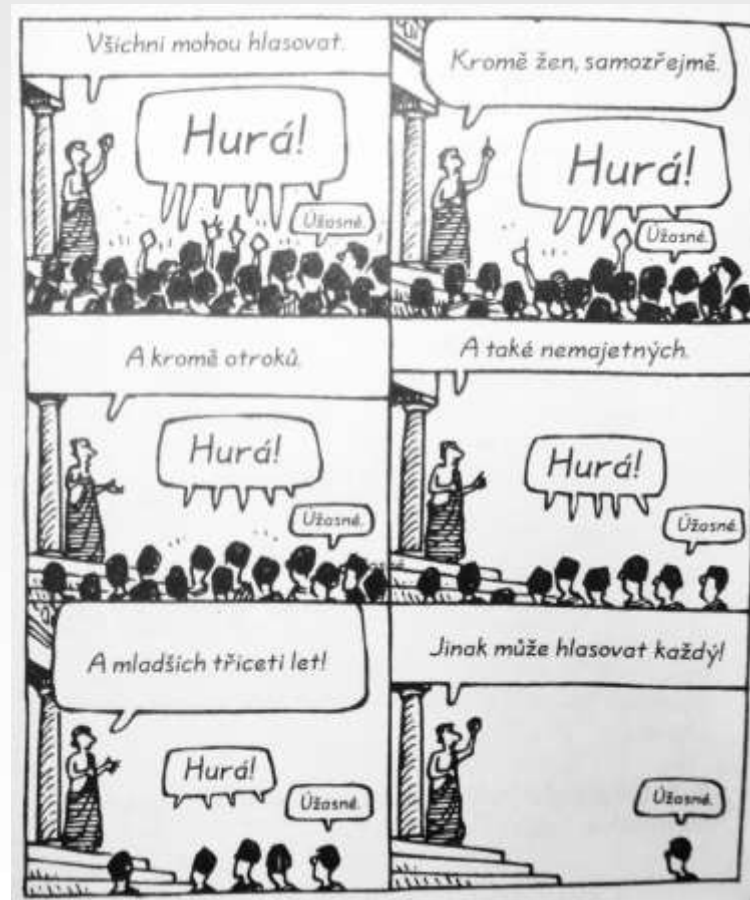 Všichni mohou hlasovat.
Hurá!
Úžasné.
Kromě žen, samozřejmě.
Hurá!
Úžasné.
A kromě otroků.
Hurá!
Úžasné.
A také nemajetných.
Hurá!
Úžasné.
A mladších třiceti let!
Hurá!
Úžasné.
Jinak může hlasovat každý!
Úžasné.